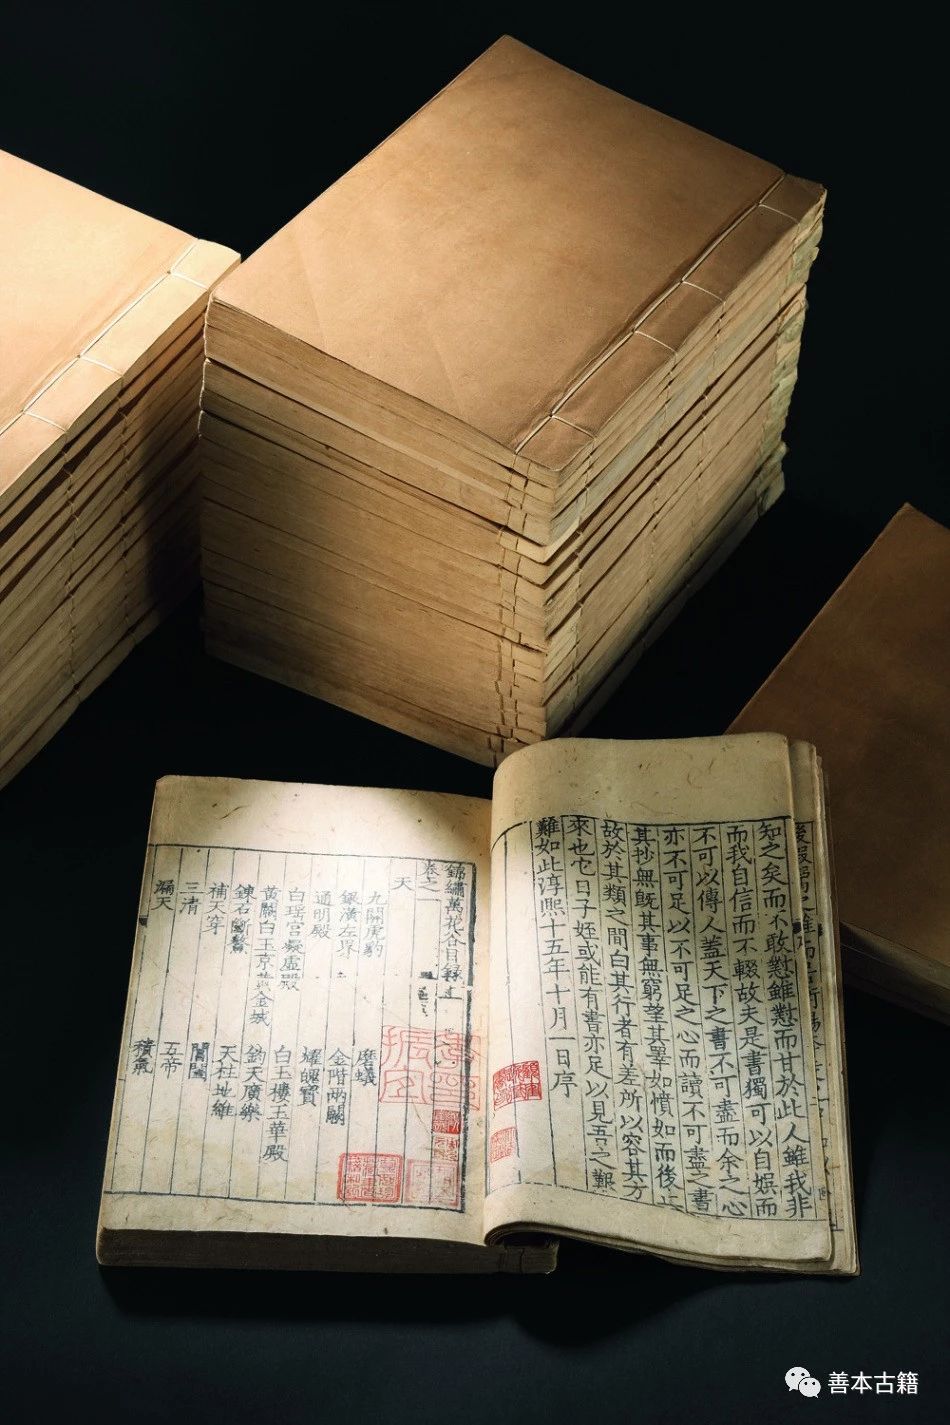 知之矣而不敢懟雖懟而甘於此人雖我非
而我自信而不輟故夫是書獨可以自娛而
不可以傳人蓋天下之書不可盡而余之心
亦不可足以不可足之心而讀不可盡之書
其抄無既其事無窮望其睪如憤如而後止
故於其類之間白其行者有差所以容其方
來也它日子姪或能有書亦足以見吾之艱
難如此淳熙十五年十月一日序
錦繡萬花谷目錄
卷之一
天
九關虎豹 磨蟻
銀潢左界 金階兩闕
通明殿 耀魄寶
白瑤宮凝虛殿 白玉樓玉華殿
黃闕白玉京黃金城 鈞天廣樂
鍊石斷鰲 天柱地維
補天穿 閶闔
三清 五帝
漏天 積氣
善本古籍